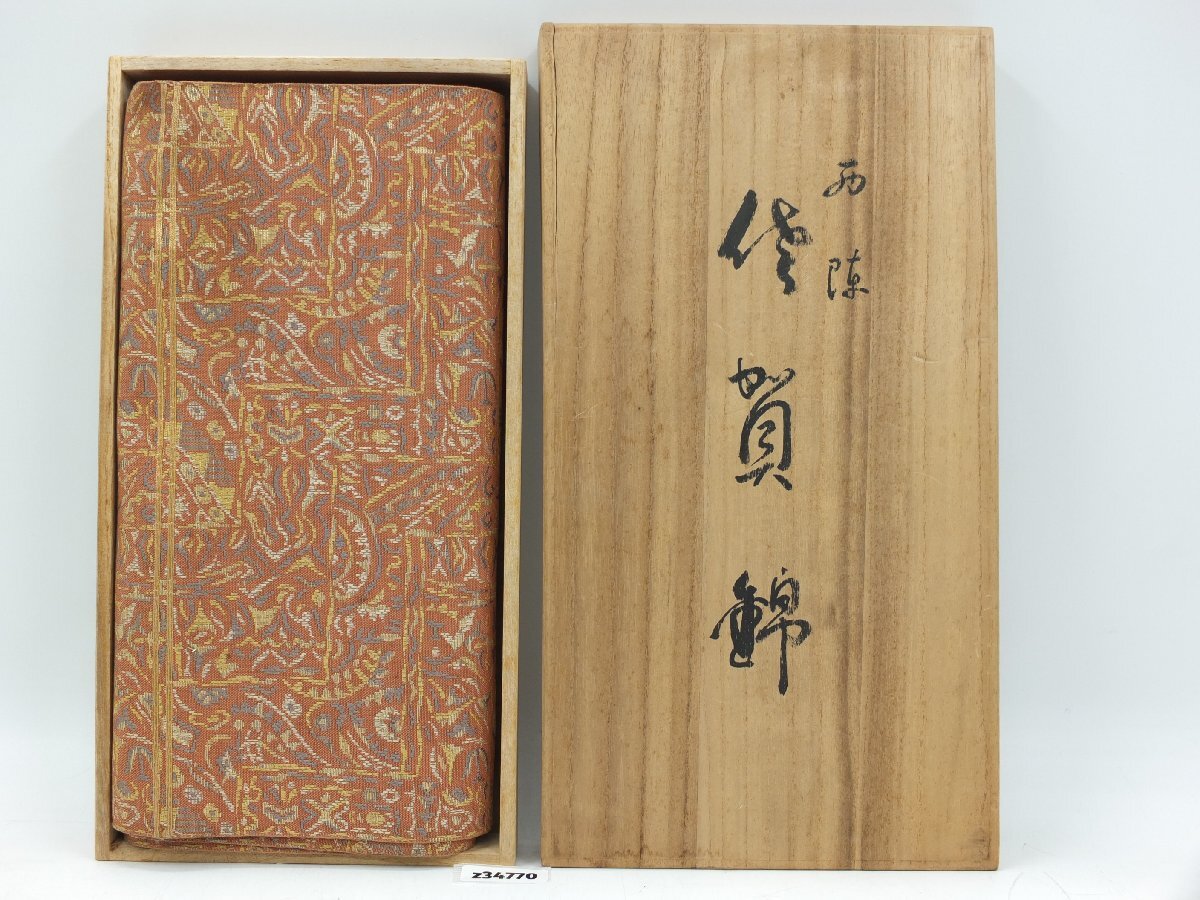 西陣
佐賀錦
z34770